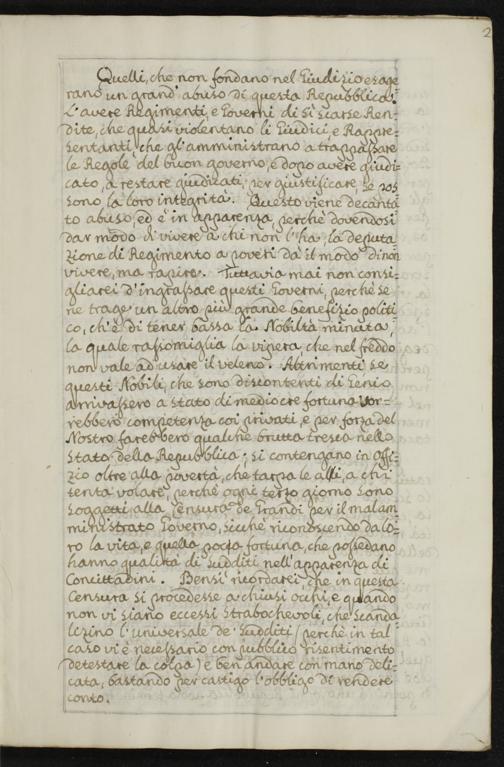 2
Quelli, che non fondano nel Giudizio esage
rano un grand' abuso di questa Repubblica
l'avere Regimenti, e Governi di sì scarse Ren=
dite, che quasi violentano li Giudici, e Rappre=
sentanti, che gli amministrano a trappassare
le Regole del buon governo, e dopo avere giudi=
cato, a restare giudicati, per giustificare, se pos
sono la loro integrità. Questo viene decanta=
to abuso, ed è in apparenza, perchè dovendosi
dar modo di vivere a chi non l'ha, la deputa=
zione di Regimento a poveri dà il modo di non
vivere, ma rapire. Tuttavia mai non consi=
gliarei d'ingrassare questi Governi, perchè se
ne trage un altro più grande benefizio politi=
co, ch'è di tener bassa la Nobiltà minuta,
la quale rassomiglia la vipera, che nel freddo
non vale ad usare il veleno. Altrimenti se
questi Nobili, che sono discontenti di Genio
arrivassero a stato di mediocre fortuna vor=
rebbero competenza coi privati, e per forza del
Nostro farebbero qualche brutta tresca nello
Stato della Repubblica; si contengano in offi=
zio oltre alla povertà, che tarpa le alli, a chi
tenta volare, perchè ogni terzo giorno sono
soggetti alla Censura de' Grandi per il malam
ministrato Governo, sicchè riconoscendo da lo=
ro la vita, e quella poca fortuna, che possedano
hanno qualità di sudditi nell'apparenza di
Concittadini. Bensì ricordarei, che in questa
Censura si procedesse a chiusi occhi, e quando
non vi siano eccessi strabochevoli, che scanda
lizino l'universale de' Sudditi (perchè in tal
caso vi è necessario con pubblico risentimento
detestare la colpa) e ben andare con mano deli=
cata, bastando per castigo l'obbligo di rendere
conto.